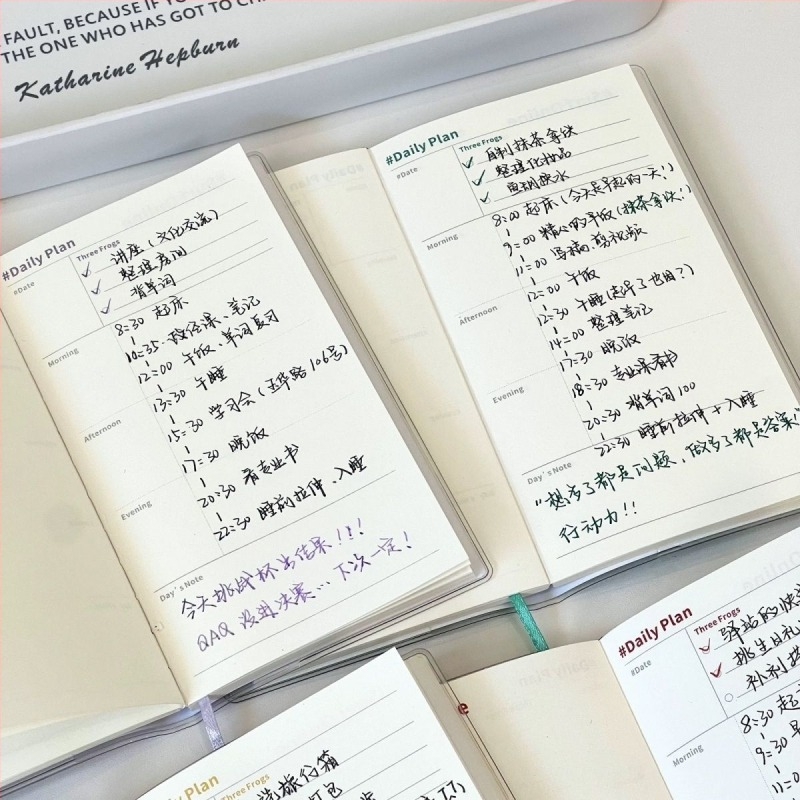 FAULT, BECAUSE IF YOU
THE ONE WHO HAS GOT TO CH
Katharine Hepburn
#Daily Plan
#Date
Three Frogs
讲座（文化交流）
整理房间
背单词
Morning
Afternoon
Evening
8:30 起床
10:35 政经课、笔记
12:00 午饭、单词复习
13:30 午睡
15:30 学习会（五华路106号）
17:30 晚饭
20:30 看专业书
22:30 睡前拉伸、入睡
Day's Note
今天挑战杯出结果！！！
QAQ 没进决赛... 下次一定！
#Daily Plan
#Date
Three Frogs
自制抹茶拿铁
整理化妆品
Morning
Afternoon
Evening
8:00 起床（今天是早起的一天！）
9:00 精心的早饭（抹茶拿铁！）
11:00 写稿、剪视频
12:00 午饭
12:30 午睡（起早了也困？）
14:00 整理笔记
17:30 晚饭
18:30 专业课看书
20:30 背单词100
22:30 睡前拉伸+入睡
Day's Note
"想多了都是问题，做多了都是答案！
行动力！！
#Daily Plan
#Date
Three Frogs
驿站的快
挑生日礼
补利
Morning
8:30 起
9:30 早
11:00
e
Daily Plan
Three Frogs
旅行箱
打包